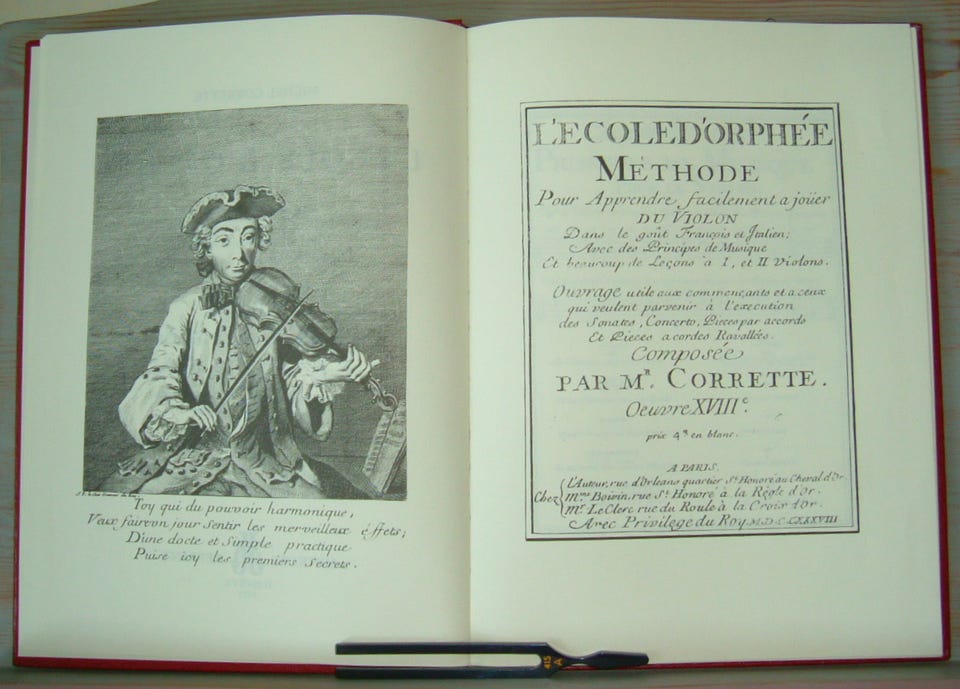 Toy qui du pouvoir harmonique,
Veux faire un jour sentir les merveilleux éffets;
D'une docte et simple practique
Puise icy les premiers secrets.
L'ECOLE D'ORPHÉE
MÉTHODE
Pour Apprendre facilement a joüer
DU VIOLON
Dans le goût François et Italien;
Avec des Principes de Musique
Et beaucoup de Leçons à I, et II Violons.
Ouvrage utile aux commençants et a ceux
qui veulent parvenir à l'execution
des Sonates, Concerto, Pieces par accords
Et Pieces a cordes Ravallées.
Composée
PAR Mr. CORRETTE.
Oeuvre XVIIIe.
prix 4tt en blanc.
A PARIS,
Chez
L'Auteur, rue d'Orleans quartier St. Honoré au Cheval d'Or.
Mme. Boivin, rue St. Honoré à la Régle d'Or.
Mr. Le Clerc rue du Roule à la Croix d'Or.
Avec Privilege du Roy M.D.C.CXXXVIII
415
A